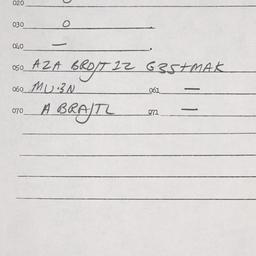 020
030 0
040 — .
050 AZA BROJT 22 G35+MAK
060 MU·3N 061 —
070 A BRAJTL 071 —